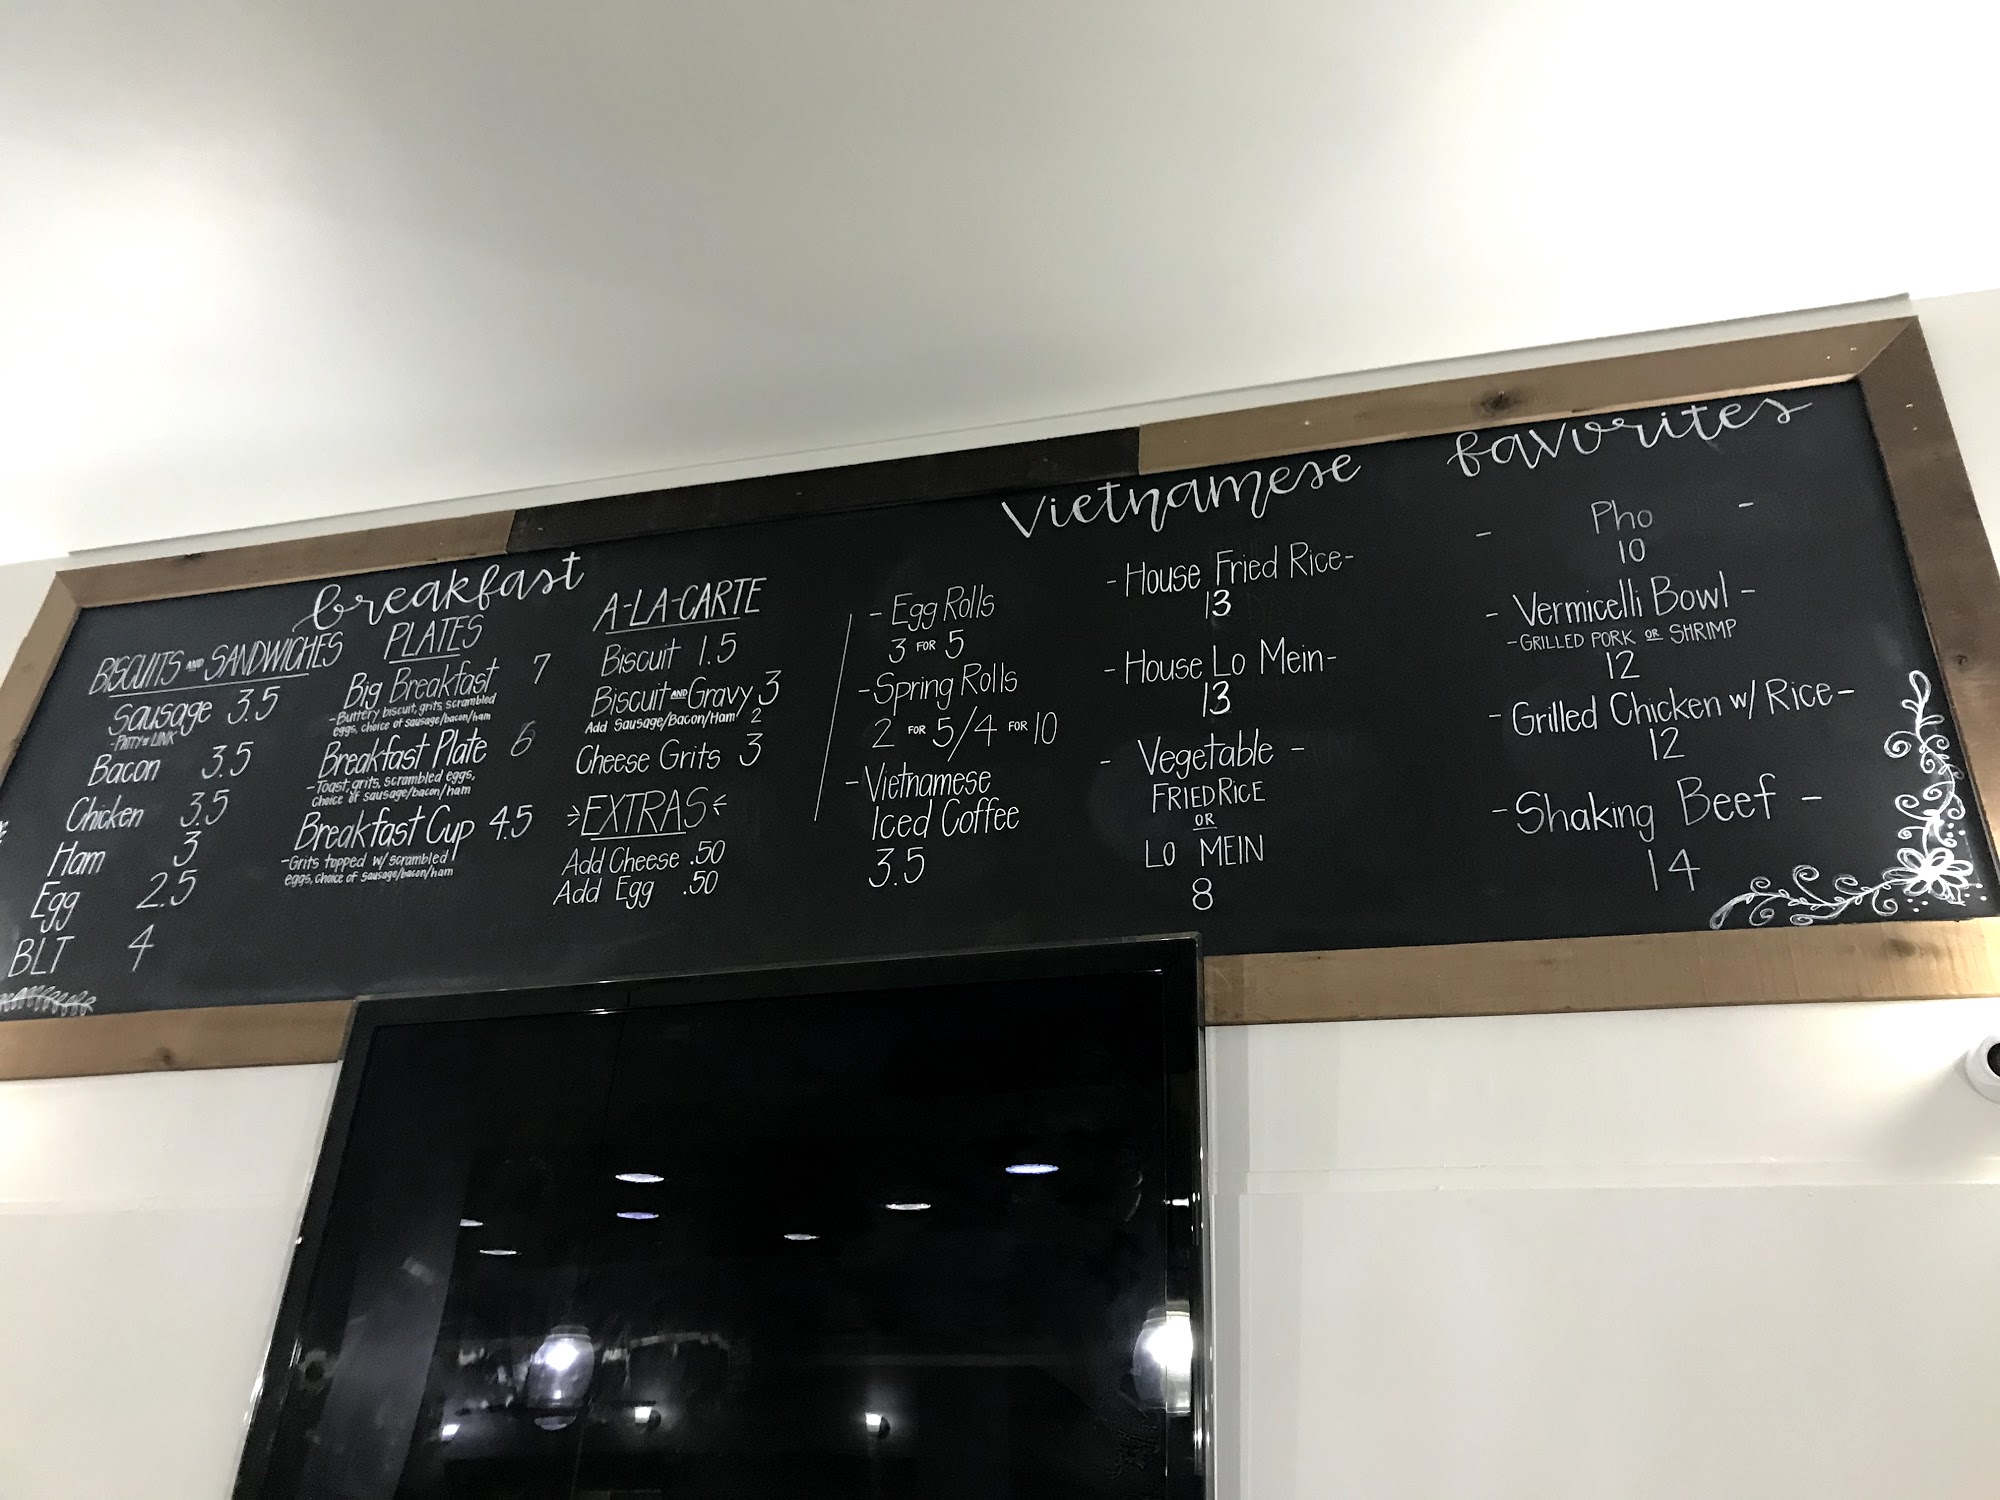 breakfast
BISCUITS AND SANDWICHES
Sausage 3.5
-PATTY or LINK
Bacon 3.5
Chicken 3.5
Ham 3
Egg 2.5
BLT 4
PLATES
Big Breakfast 7
-Buttery biscuit, grits, scrambled
eggs, choice of sausage/bacon/ham
Breakfast Plate 6
-Toast, grits, scrambled eggs,
choice of sausage/bacon/ham
Breakfast Cup 4.5
-Grits topped w/ scrambled
eggs, choice of sausage/bacon/ham
A-LA-CARTE
Biscuit 1.5
Biscuit AND Gravy 3
Add Sausage/Bacon/Ham 2
Cheese Grits 3
EXTRAS
Add Cheese .50
Add Egg .50
Vietnamese favorites
- Egg Rolls
3 FOR 5
-Spring Rolls
2 FOR 5/4 FOR 10
-Vietnamese
Iced Coffee
3.5
- House Fried Rice-
13
- House Lo Mein-
13
- Vegetable -
FRIED RICE
OR
LO MEIN
8
- Pho -
10
- Vermicelli Bowl -
-GRILLED PORK OR SHRIMP
12
- Grilled Chicken w/ Rice-
12
-Shaking Beef -
14